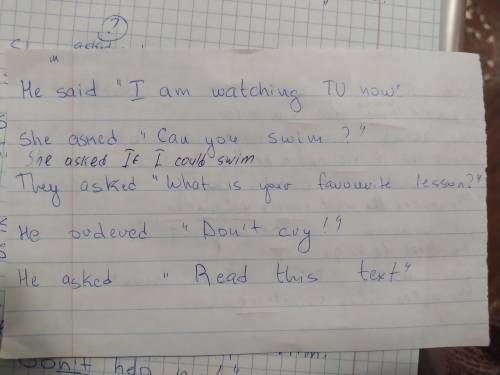 ?
asked
He said "I am watching TV now"
She asned "Can you swim?"
She asked If I could swim
They asked "What is your favourite lesson?"
He ordered "Don't cry!"
He asked "Read this text"
Don't help